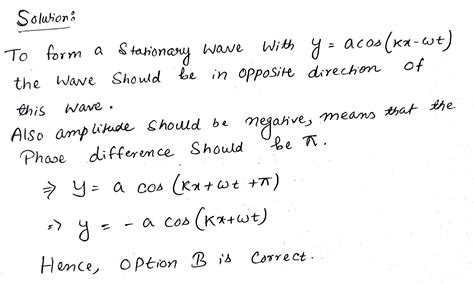 Solution:
To form a Stationary wave with y = a cos(kx-ωt)
the wave should be in opposite direction of
this wave.
Also amplitude should be negative, means that the
Phase difference should be π.
⇒ y = a cos (kx+ωt +π)
⇒ y = - a cos (kx+ωt)
Hence, option B is correct.